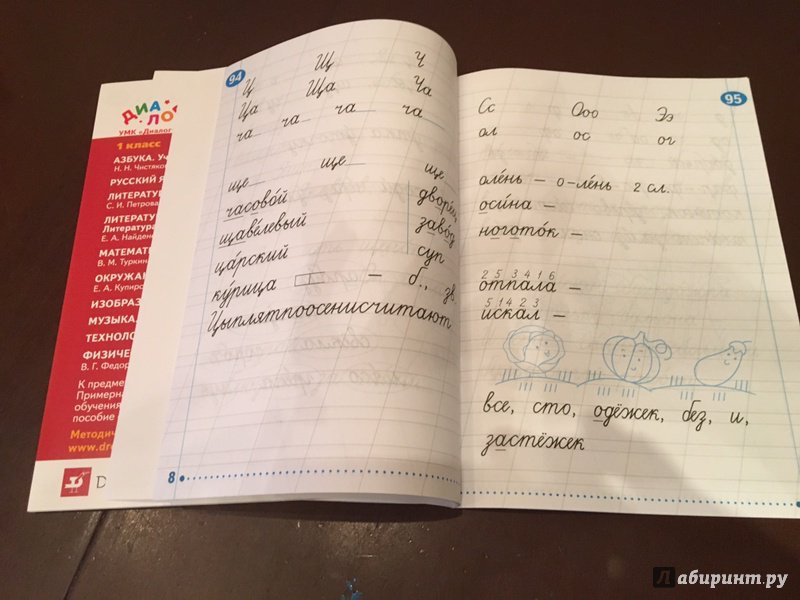 ДИА
ЛО
УМК «Диалог
1 класс
АЗБУКА. Уч
Н. Н. Чистяков
РУССКИЙ Я
ЛИТЕРАТУ
С. И. Петрова
ЛИТЕРАТУ
Литература
Е. А. Найден
МАТЕМАТ
В. М. Туркин
ОКРУЖА
Е. А. Купиро
ИЗОБРАЗ
МУЗЫКА.
ТЕХНОЛО
ФИЗИЧЕ
В. Г. Федор
К предме
Примерна
обучения
пособие
Методич
www.dr
D
94
Ц Щ Ч
Ца Ща Ча
ча ча ча ча
ще ще ще
часово́й дворе́ц
щаве́левый заво́д
ца́рский суп
ку́рица — б., зв.
Цыплятпоосенисчитают
8
95
Сс Ооо Ээ
ол ос ог
оле́нь – о-ле́нь 2 сл.
оси́на –
ногото́к –
2 5 3 4 1 6
отпала –
5 1 4 2 3
искал –
все, сто, одёжек, без, и,
застёжек
Лабиринт.ру